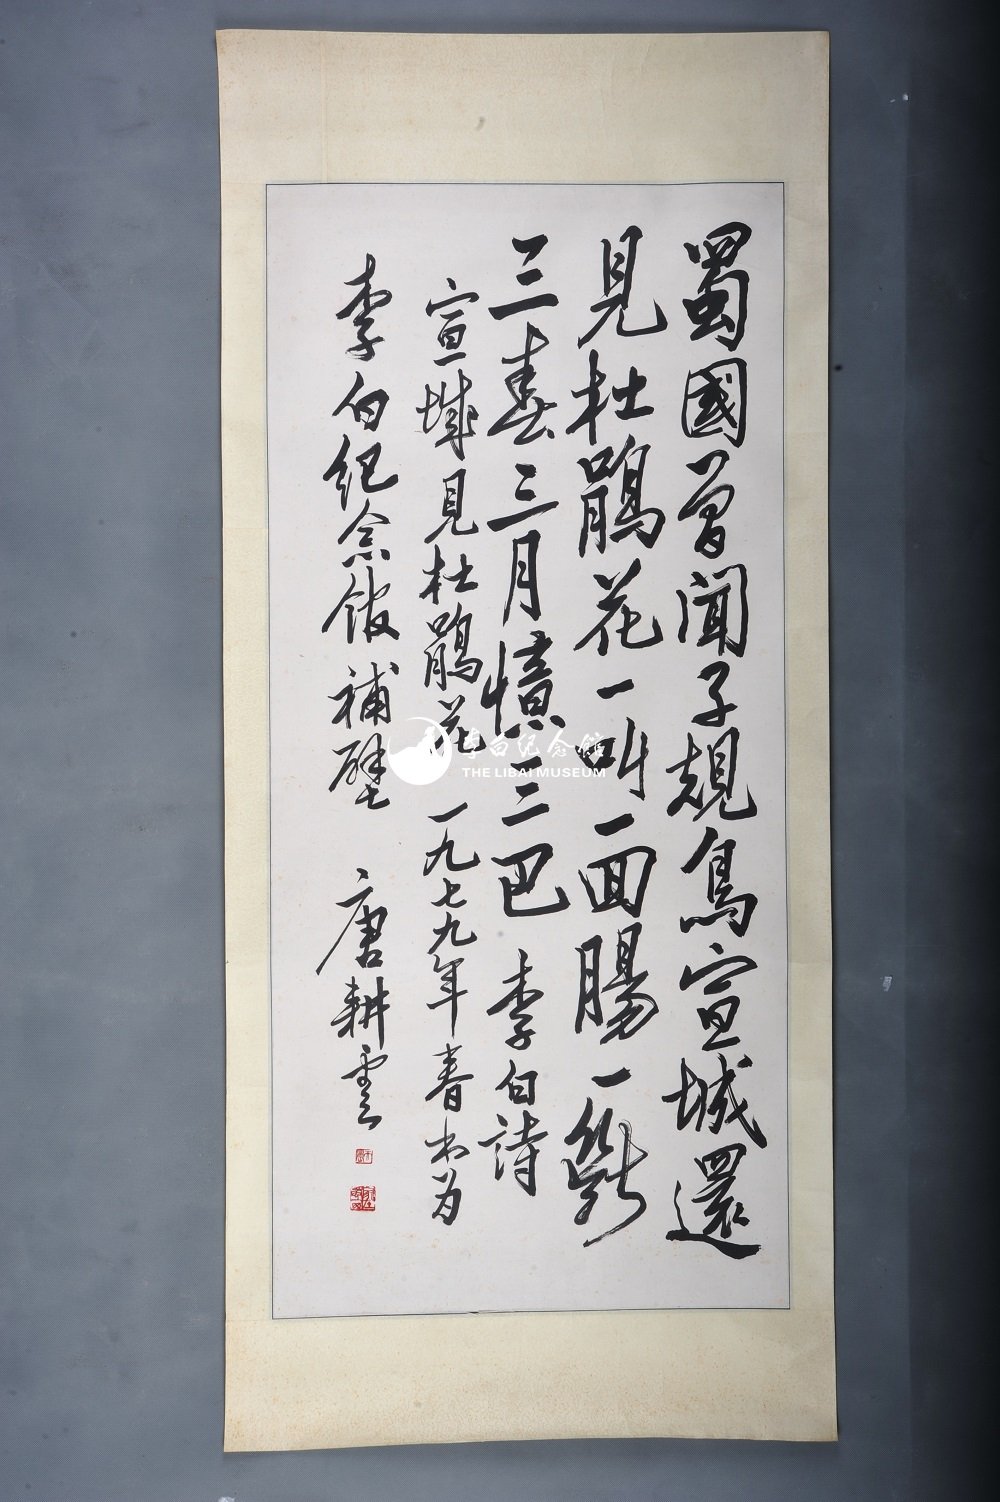 蜀國曾聞子規鳥宣城還
見杜鵑花一叫一回腸一斷
三春三月憶三巴 李白詩
宣城見杜鵑花 一九七九年春书为
李白纪念馆補壁 唐耕雲
李白纪念館
THE LIBAI MUSEUM